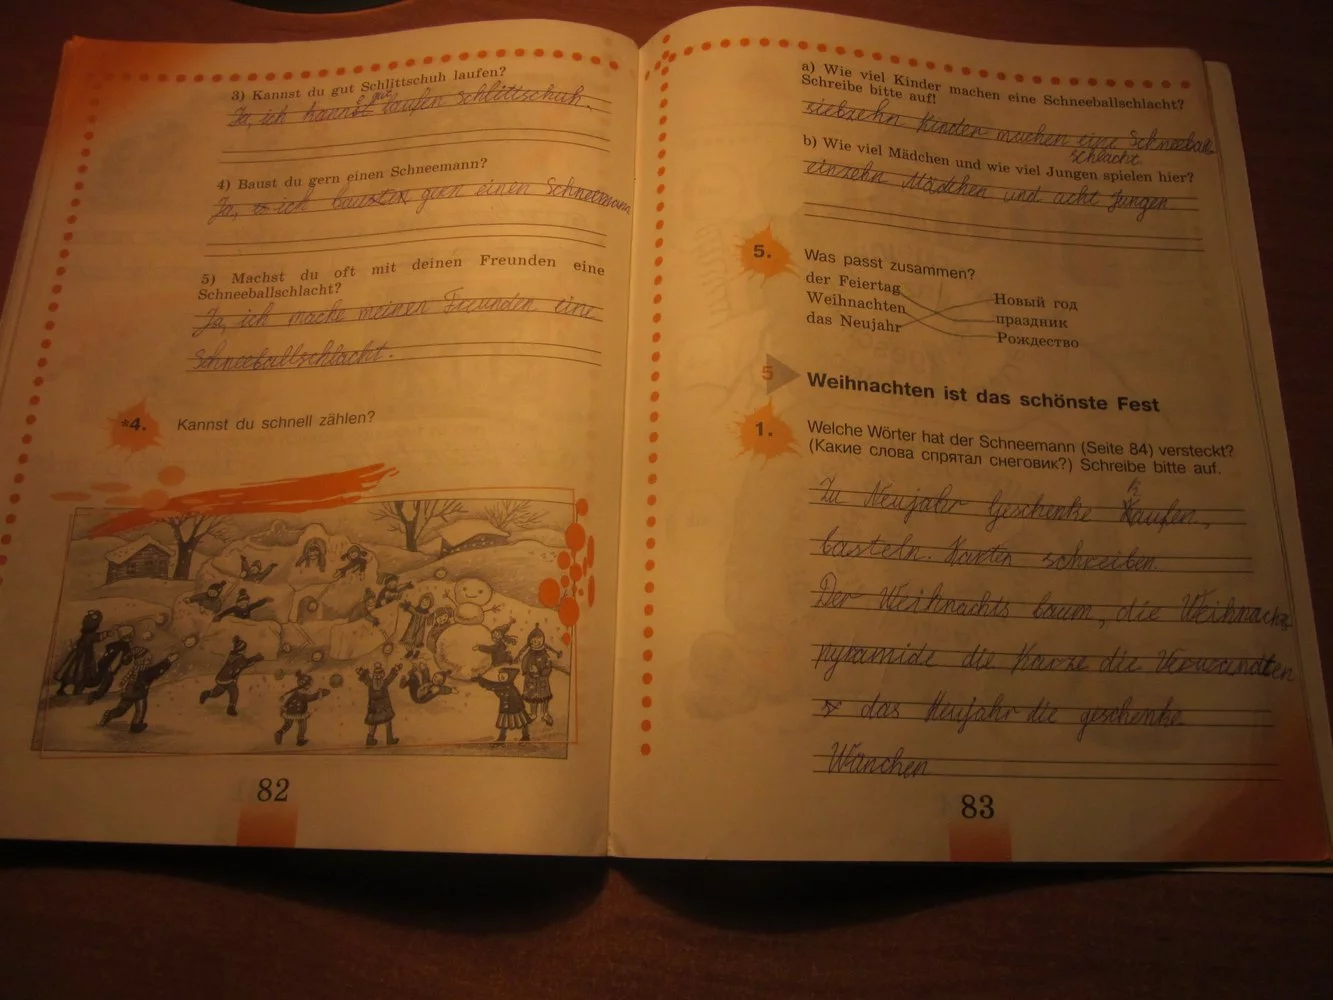 3) Kannst du gut Schlittschuh laufen?
Ja, ich kann gut laufen Schlittschuh.
4) Baust du gern einen Schneemann?
Ja, ich gern einen Schneemann
5) Machst du oft mit deinen Freunden eine
Schneeballschlacht?
Ja, ich mache meinen Freunden eine
Schneeballschlacht.
*4. Kannst du schnell zählen?
82
a) Wie viel Kinder machen eine Schneeballschlacht?
Schreibe bitte auf!
siebzehn Kinder machen eine Schneeball
schlacht
b) Wie viel Mädchen und wie viel Jungen spielen hier?
einzehn Mädchen und acht Jungen
5. Was passt zusammen?
der Feiertag
Weihnachten
das Neujahr
Новый год
праздник
Рождество
5 Weihnachten ist das schönste Fest
1. Welche Wörter hat der Schneemann (Seite 84) versteckt?
(Какие слова спрятал снеговик?) Schreibe bitte auf.
Zu Neujahr Geschenke kaufen,
basteln. Karten schreiben
Der Weihnachts baum, die Weihnachts
pyramide die Karze die Verwandten
das Neujahr die geschenke
Wünchen
83